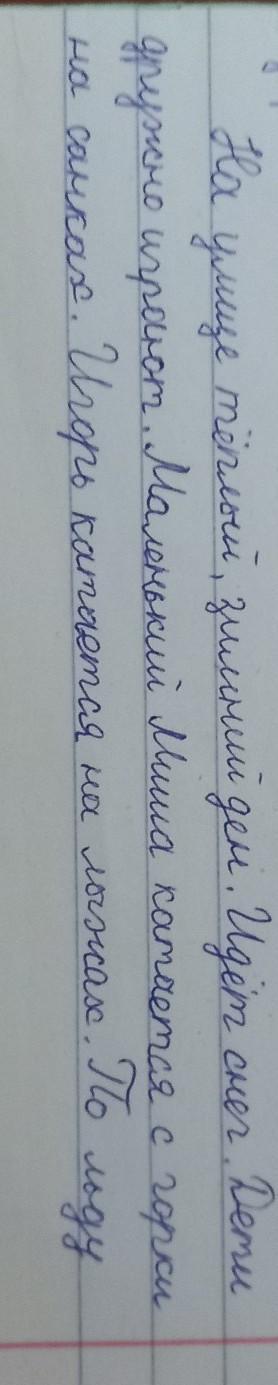 На улице тёплый, зимний ден. Идёт снег. Дети
дружно играют. Маленький Миша катается с горки
на санках. Игорь катается на лыжах. По льду